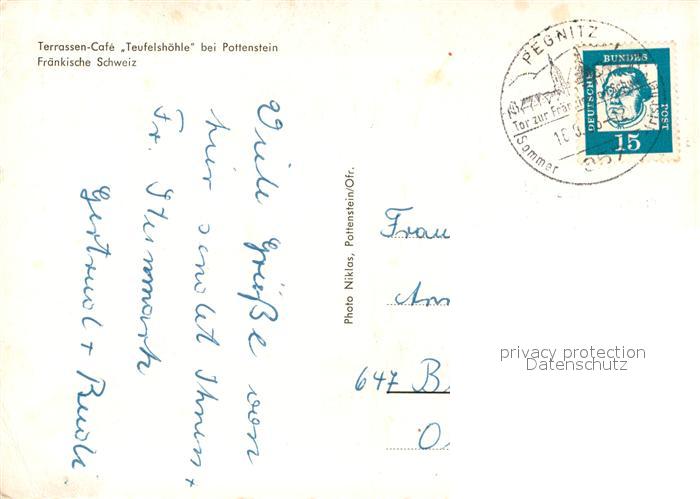 Terrassen-Café „Teufelshöhle" bei Pottenstein
Fränkische Schweiz
Viele Grüße von
hier sendet Ihnen +
Fr. Steinmark
Gertrud + Rudi
Photo Niklas, Pottenstein/Ofr.
PEGNITZ
Tor zur Frän
Sommer
857
DEUTSCHE BUNDES POST
15
Frau
An
647 B
O
privacy protection
Datenschutz